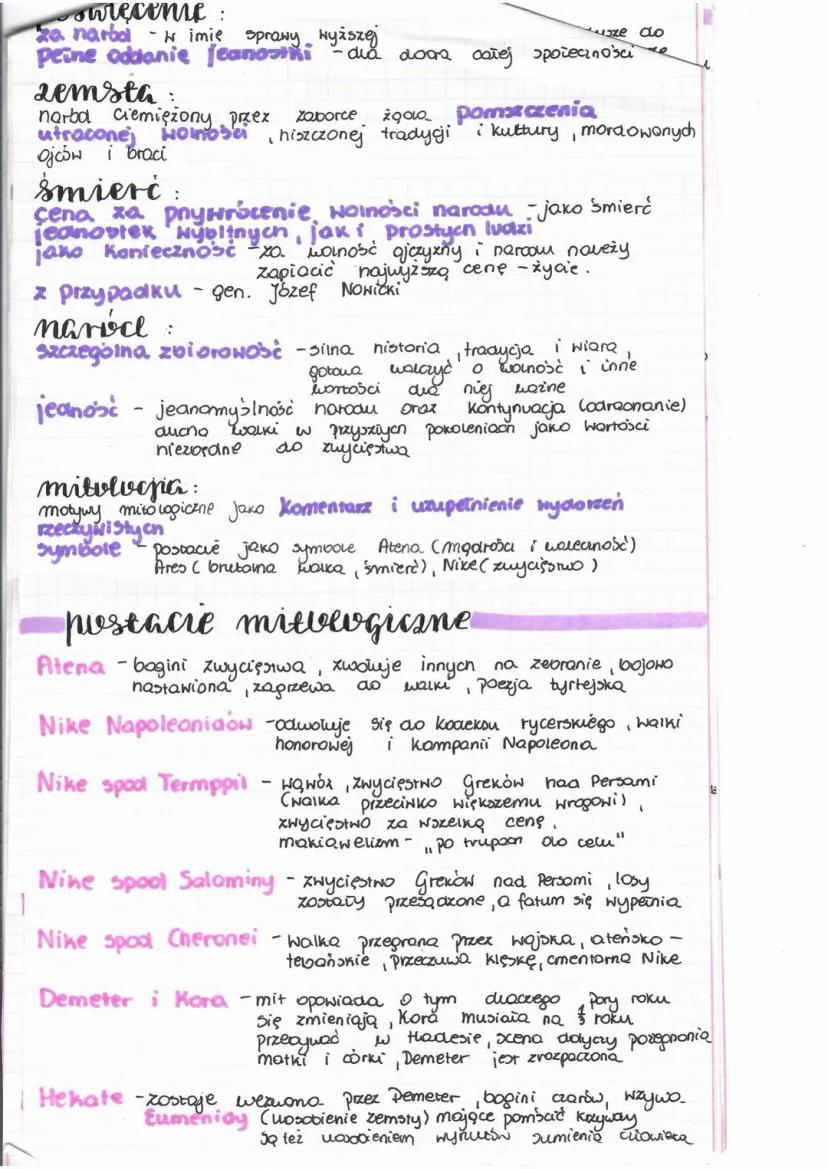 poświęcenie :
za naród - w imię sprawy wyższej
pełne oddanie jednostki - dla dobra całej społeczności
zemsta :
naród ciemiężony przez zaborcę żąda pomszczenia
utraconej wolności , niszczonej tradycji i kultury , mordowanych
ojców i braci
śmierć :
cena za przywrócenie wolności narodu - jako śmierć
jednostek wybitnych , jak i prostych ludzi
jako konieczność - za wolność ojczyzny i narodu należy
zapłacić najwyższą cenę - życie .
z przypadku - gen. Józef Nowicki
naród :
szczególna zbiorowość - silna historia , tradycja i wiara ,
gotowa walczyć o wolność i inne
wartości dla niej ważne
jedność - jednomyślność narodu oraz kontynuacja (odradzanie)
ducha walki w przyszłych pokoleniach jako wartości
niezbędne do zwycięstwa
mitologia :
motywy mitologiczne jako komentarz i uzupełnienie wydarzeń
rzeczywistych
symbole - postacie jako symbole Atena (mądrości i waleczność)
Ares ( brutalna walka , śmierć ) , Nike ( zwycięstwo )
postacie mitologiczne
Atena - bogini zwycięstwa , zwołuje innych na zebranie , bojowo
nastawiona , zagrzewa do walki , poezja tyrtejska
Nike Napoleonidów - odwołuje się do kodeksu rycerskiego , walki
honorowej i kampanii Napoleona
Nike spod Termppil - wąwóz , zwycięstwo Greków nad Persami
(walka przeciwko większemu wrogowi) ,
zwycięstwo za wszelką cenę ,
makiawelizm - „ po trupach do celu"
Nike spod Salaminy - zwycięstwo Greków nad Persami , losy
zostały przesądzone , a fatum się wypełnia
Nike spod Cheronei - walka przegrana przez wojska , ateńsko -
tebańskie , przeczuwa klęskę , cmentarna Nike
Demeter i Kora - mit opowiada o tym dlaczego pory roku
się zmieniają , Kora musiała na 1/3 roku
przebywać w Hadesie , scena dotyczy pożegnania
matki i córki , Demeter jest zrozpaczona
Hekate - zostaje wezwana przez Demeter , bogini czarów , wzywa
Eumenidy (uosobienie zemsty) mające pomścić krzywdy
są też uosobieniem wyrzutów sumienia człowieka